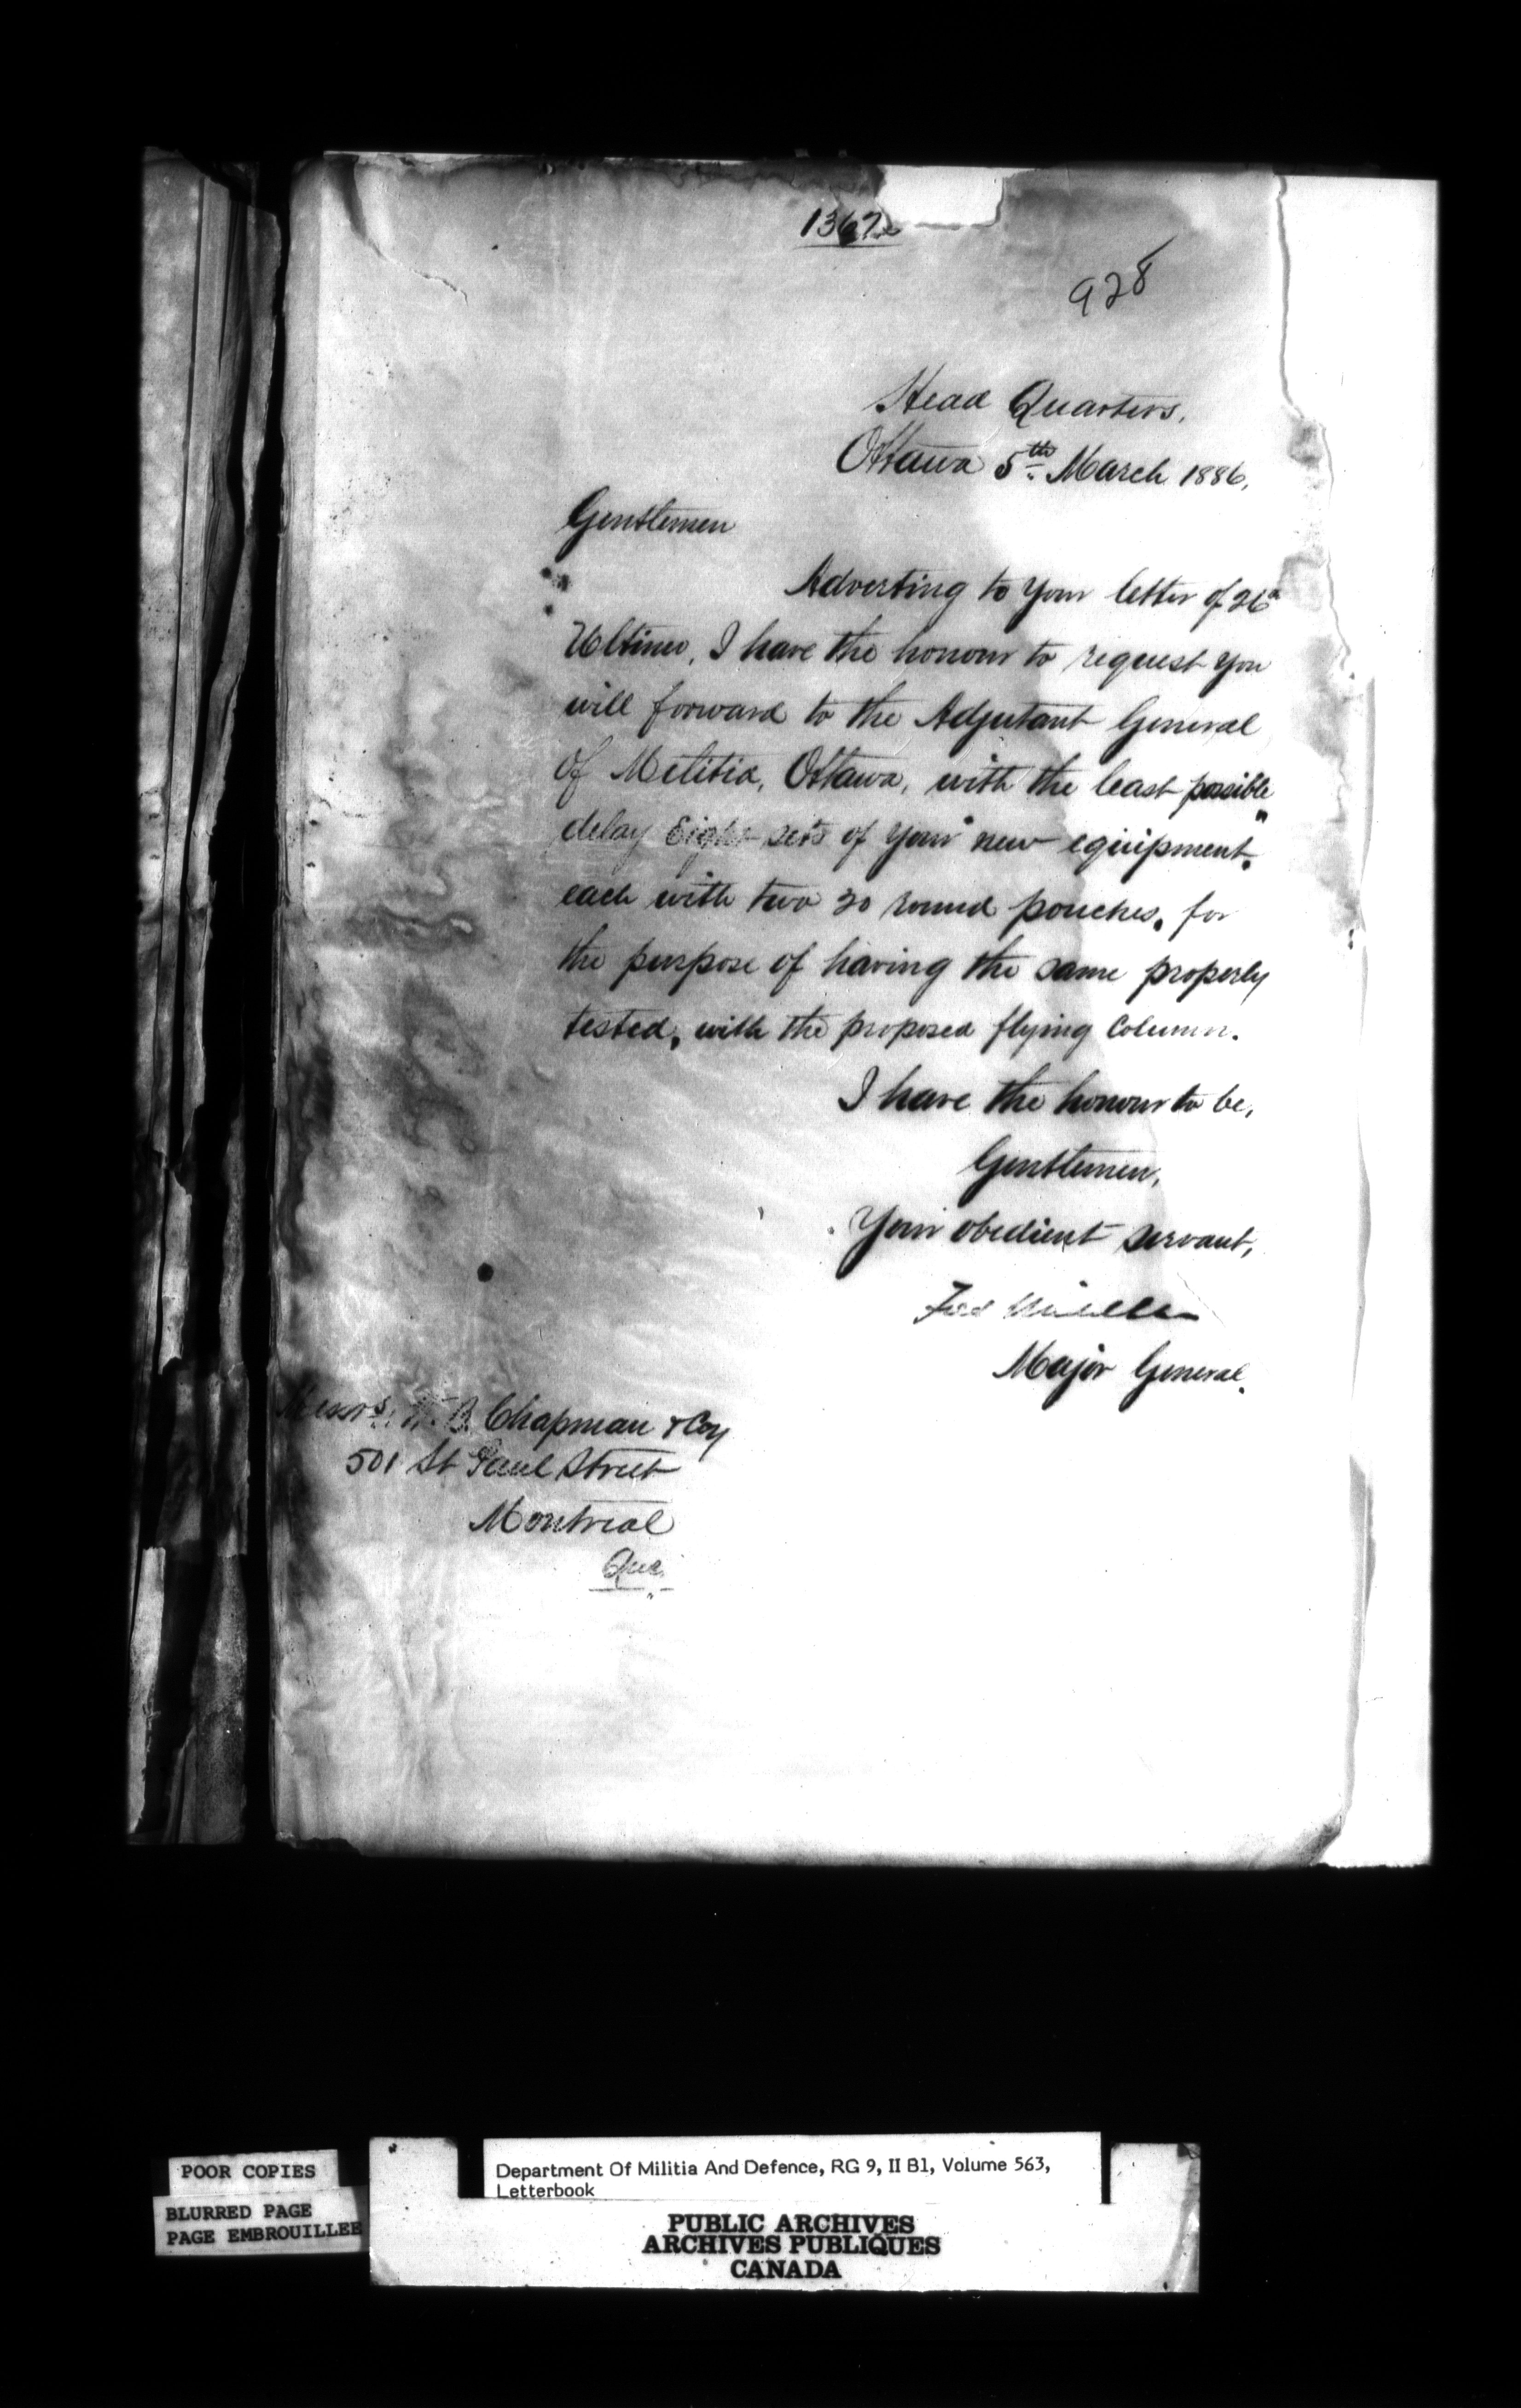 1367
928
Head Quarters,
Ottawa 5th March 1886,
Gentlemen
Adverting to your letter of 26th
Ultimo, I have the honour to request you
will forward to the Adjutant General
of Militia, Ottawa, with the least possible
delay Eight sets of your "new equipment"
each with two 20 round pouches, for
the purpose of having the same properly
tested, with the proposed flying Column.
I have the honour to be,
Gentlemen,
Your obedient servant,
Fred
Major General.
Messrs. W. B. Chapman & Coy
501 St Paul Street
Montreal
Que.
POOR COPIES
BLURRED PAGE
PAGE EMBROUILLEE
Department Of Militia And Defence, RG 9, II B1, Volume 563,
Letterbook
PUBLIC ARCHIVES
ARCHIVES PUBLIQUES
CANADA